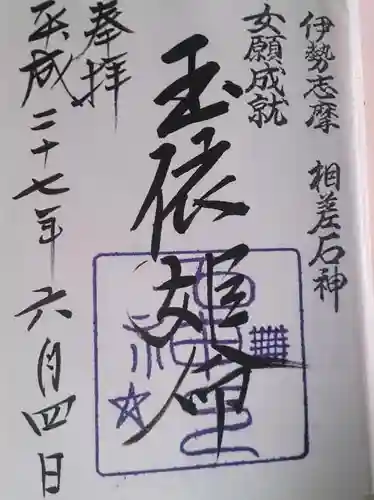 伊勢志摩 相差石神
女願成就
玉依姫命
奉拝
平成二十七年六月四日